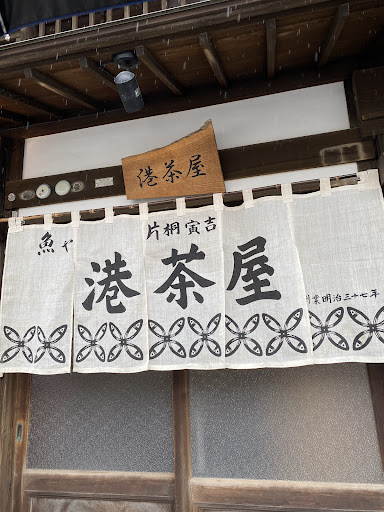 港茶屋
片桐寅吉
魚や
港茶屋
創業明治三十七年